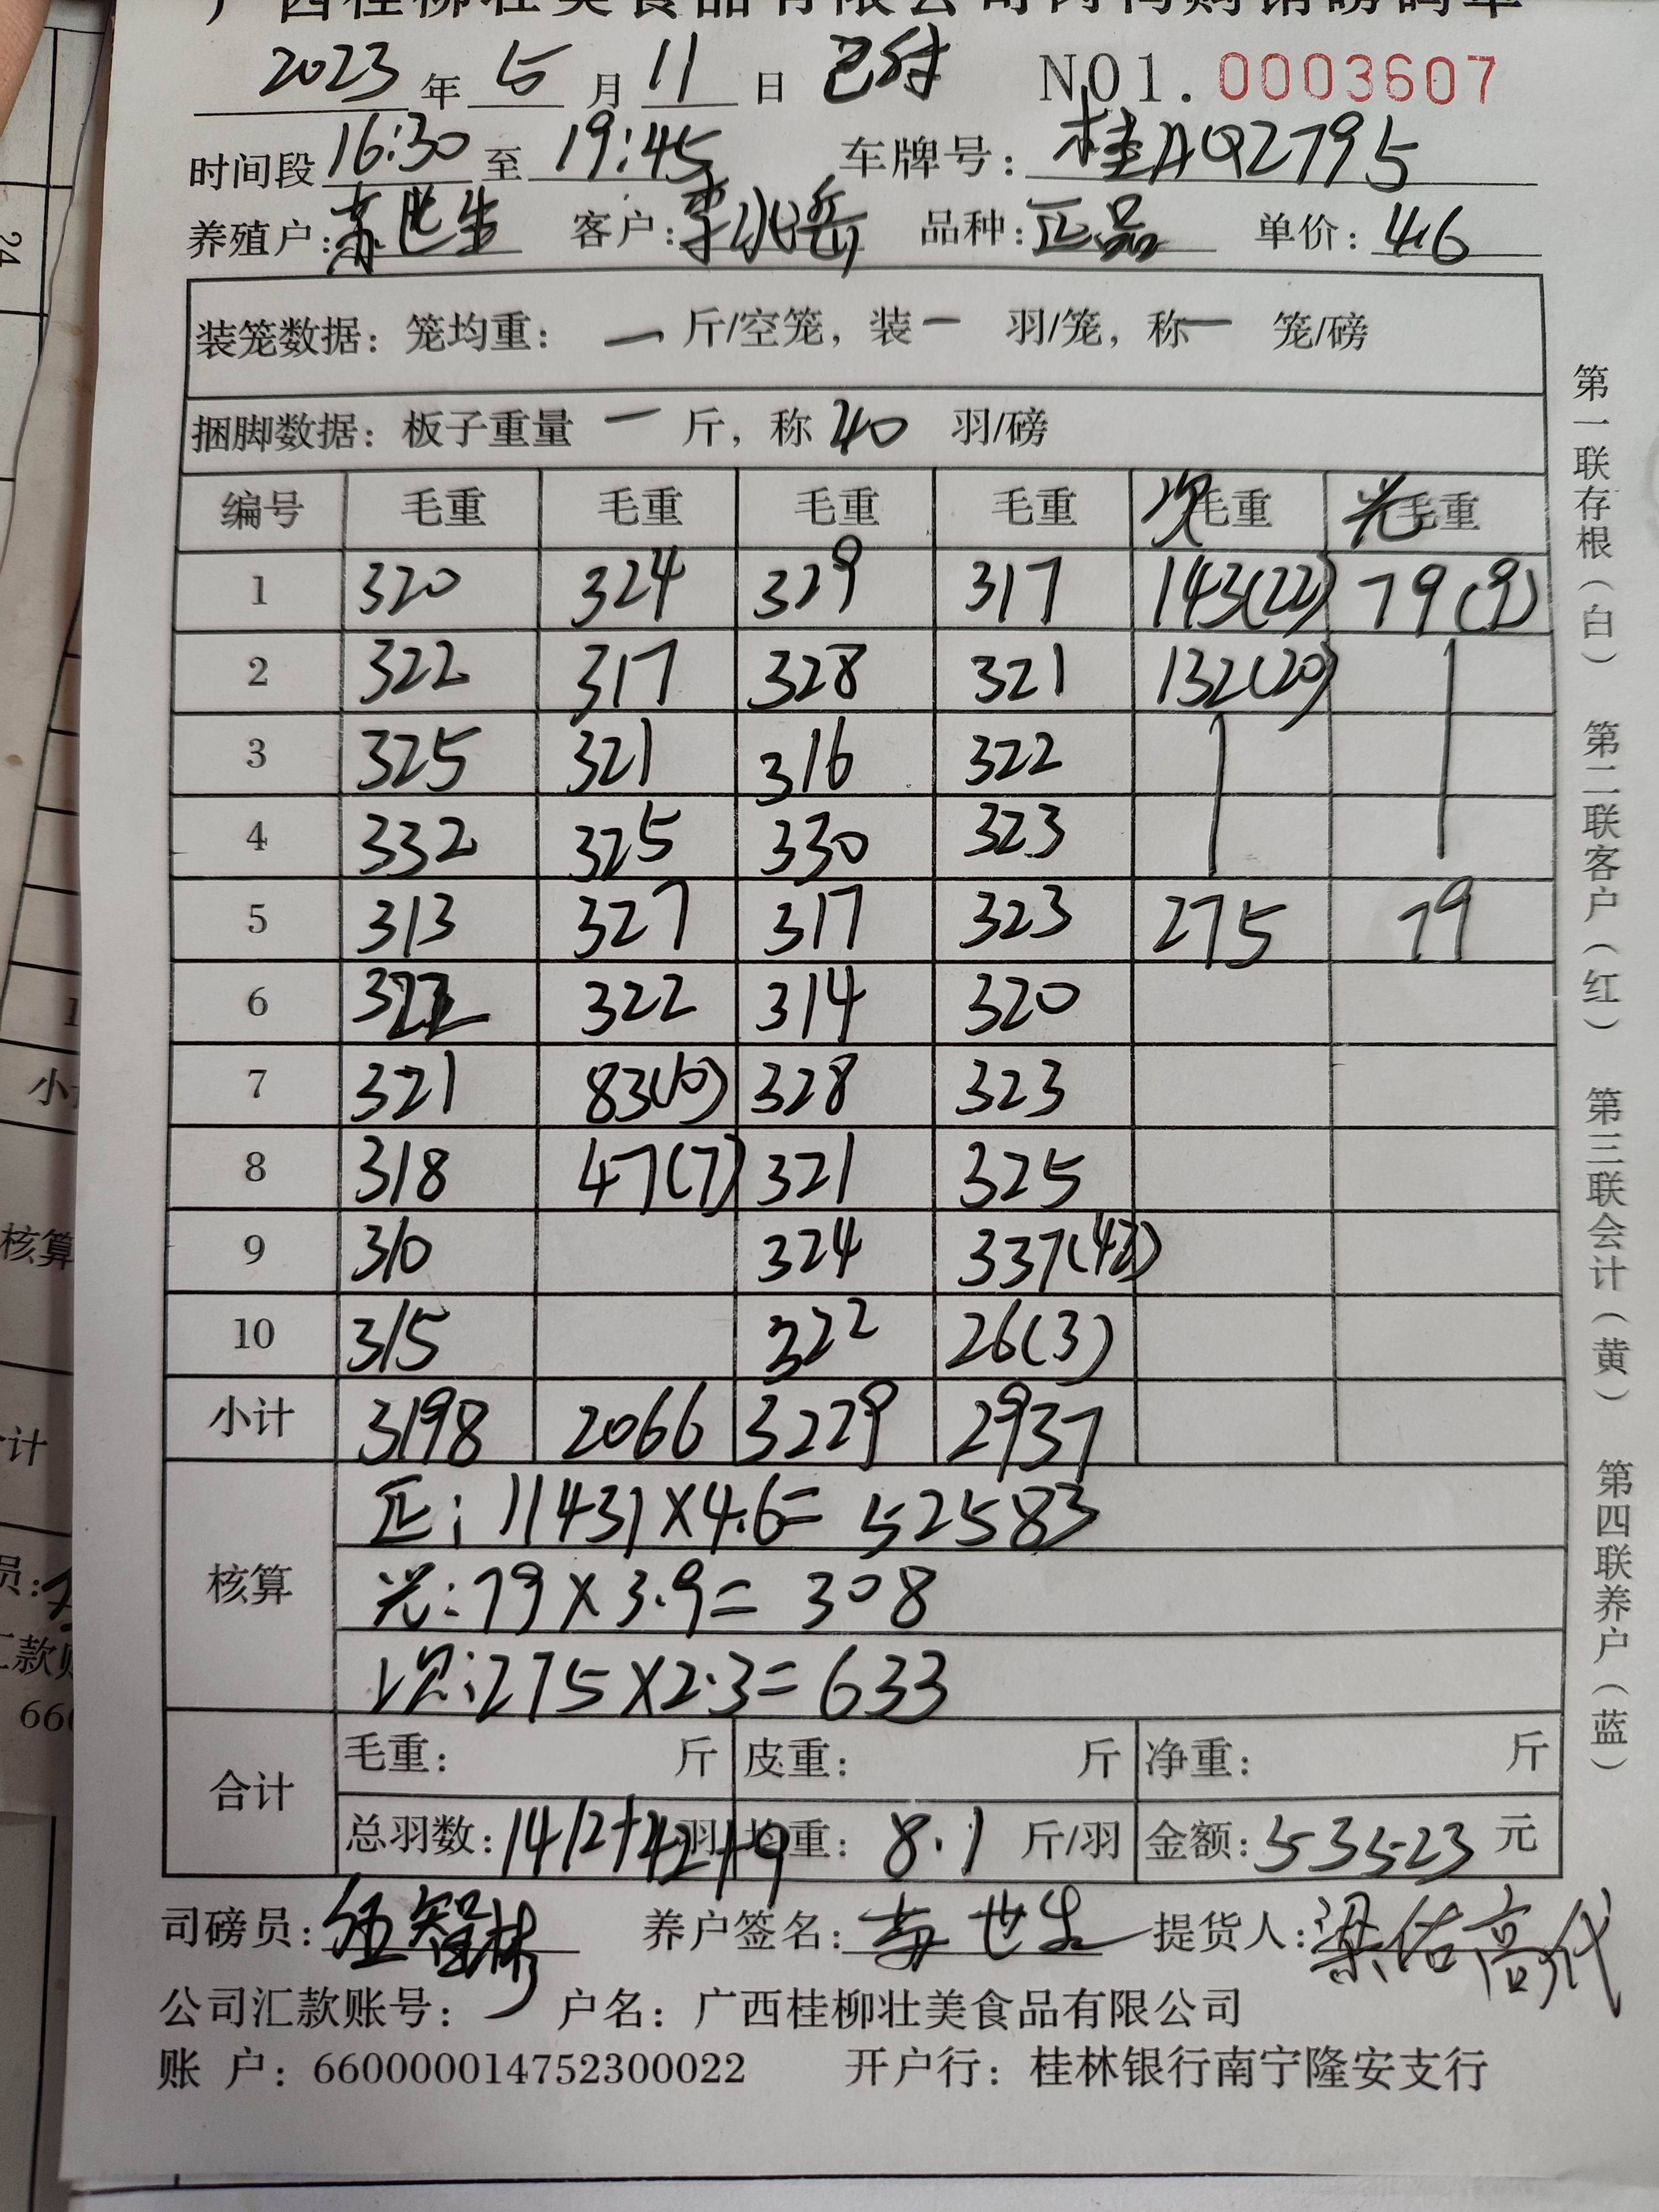 广西桂柳壮美食品有限公司肉鸭购销磅码单
2023年5月11日 已付 NO1.0003607
时间段16:30至19:45 车牌号：桂AQ2795
养殖户：苏世生 客户：李兆岳 品种：正品 单价：4.6
装笼数据：笼均重：一斤/空笼，装一羽/笼，称一笼/磅
捆脚数据：板子重量一斤，称40羽/磅
编号 毛重 毛重 毛重 毛重 次毛重 光毛重
1 320 324 329 317 143(22) 79(9)
2 322 317 328 321 132(20)
3 325 321 316 322
4 332 325 330 323
5 313 327 317 323 275 79
6 322 322 314 320
7 321 83(10) 328 323
8 318 47(7) 321 325
9 310 324 337(42)
10 315 322 26(3)
小计 3198 2066 3229 2937
核算
正：11431×4.6=52583
光：79×3.9=308
次：275×2.3=633
合计
毛重：斤 皮重：斤 净重：斤
总羽数：1412+42+9羽 均重：8.1斤/羽 金额：53523元
司磅员：伍智彬 养户签名：苏世生 提货人：梁佑高代
公司汇款账号： 户名：广西桂柳壮美食品有限公司
账 户：660000014752300022 开户行：桂林银行南宁隆安支行
第一联存根（白） 第二联客户（红） 第三联会计（黄） 第四联养户（蓝）
24
小
核算
计
员：
汇款账
660